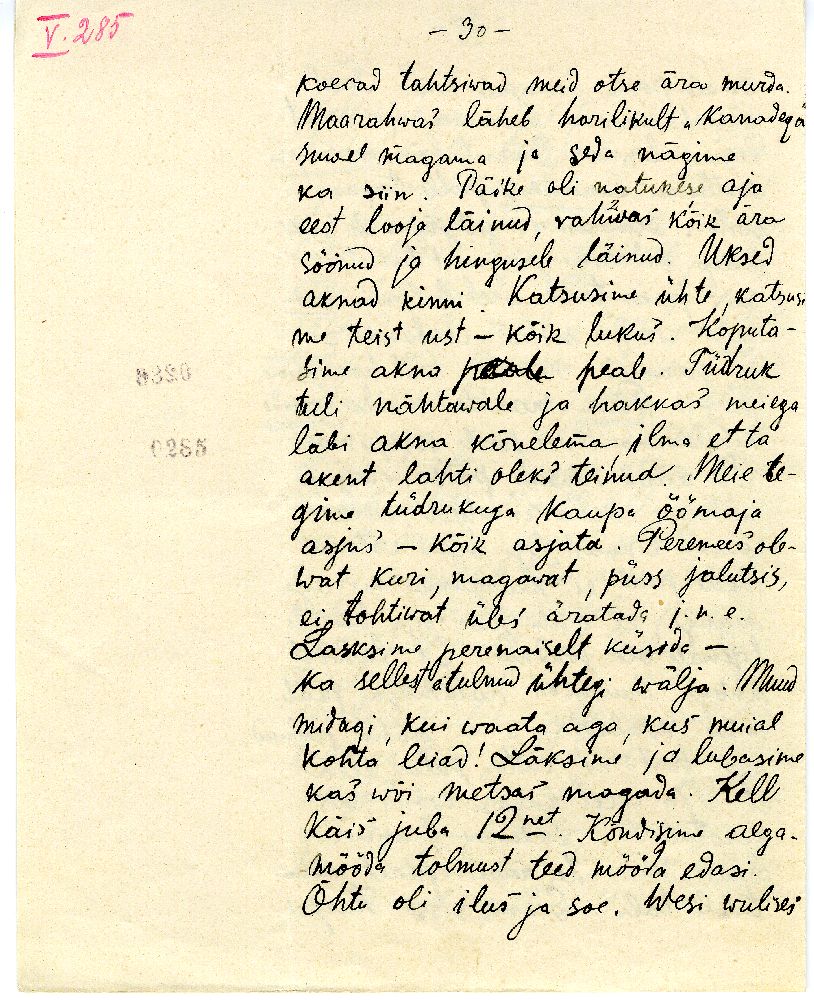 V. 285
- 30 -
koerad tahtsiwad meid otse ära murda.
Maarahwas läheb harilikult „Kanadega
suwel magama ja seda nägime
ka siin. Päike oli natukese aja
eest looja läinud, rahwas kõik ära
söönud ja hingusele läinud. Uksed
aknad kinni. Katsusime ühte, katsusi
me teist ust - kõik lukus. Koputa-
sime akna peale. Tüdruk
tuli nähtawale ja hakkas meiega
läbi akna kõnelema ilma et ta
akent lahti oleks teinud. Meie te-
gime tüdrukuga kaupa öömaja
asjus - kõik asjata. Peremees ole-
wat kuri, magawat, püss jalutsis,
ei tohtiwat üles äratada j.n.e.
Lasksime perenaiselt küsida -
ka sellest ei tulnud ühtegi wälja. Muud
midagi, kui waata aga, kus muial
kohta leiad! Läksime ja lubasime
kas wõi metsas magada. Kell
käis juba 12net. Kõndisime aega-
mööda tolmust teed mööda edasi.
Õhtu oli ilus ja soe. Wesi wulises
0285